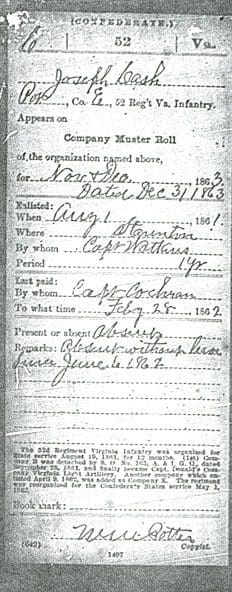 (CONFEDERATE.)
C 52 Va.
Joseph Cash
Pvt, Co. E, 52 Reg't Va. Infantry.
Appears on
Company Muster Roll
of the organization named above,
for Nov & Dec, 1863.
Dated Dec 31, 1863
Enlisted:
When Aug 1, 1861.
Where Staunton
By whom Capt Watkins
Period 1 yr
Last paid:
By whom Capt Cochran
To what time Feby 28, 1862
Present or absent Absent
Remarks: Absent without leave
since June 6 1862
The 52d Regiment Virginia Infantry was organized for
State service August 19, 1861, for 12 months. (1st) Com-
pany B was detached by S. O. No. 163, A. & I. G. O., dated
September 28, 1861, and finally became Capt. Donald's Com-
pany Virginia Light Artillery. Another company which en-
listed April 9, 1862, was added as Company K. The regiment
was reorganized for the Confederate States service May 1,
1862.
Book mark:
Potter
(642) Copyist.
1497